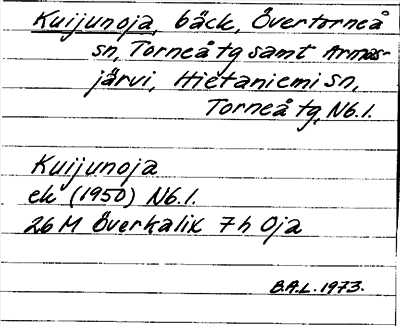 Kuijunoja, bäck, Övertorneå
sn, Torneå tg samt Armas-
järvi, Hietaniemi sn,
Torneå tg, Nb.l.
Kuijunoja
ek (1950) Nb.l.
26 M Överkalix 7h Oja
B.A.L. 1973.